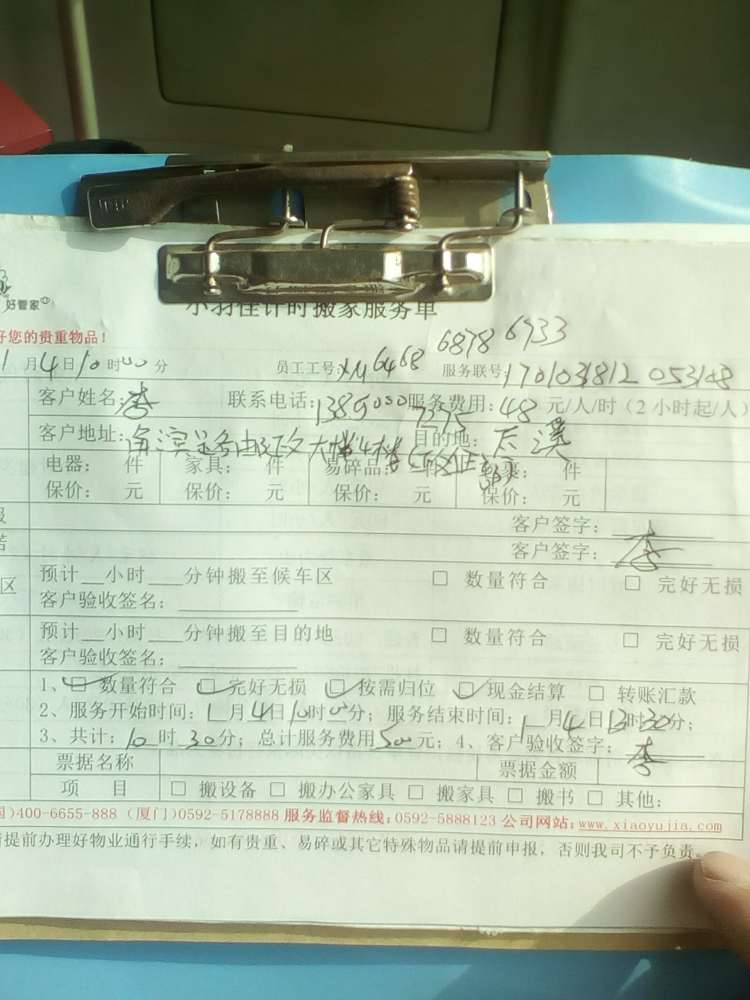 好管家
小羽佳计时搬家服务单
好您的贵重物品!
68786933
1月4日10时00分 员工工号:XM6468 服务联号:170103812 053148
客户姓名:李 联系电话: 服务费用:48元/人/时(2小时起/人)
客户地址: 大楼4楼 目的地:后溪
电器: 件 家具: 件 易碎品: 件 件
保价: 元 保价: 元 保价: 元 保价: 元
客户签字:
客户签字:李
区 预计__小时__分钟搬至候车区 □ 数量符合 □ 完好无损
客户验收签名:
预计__小时__分钟搬至目的地 □ 数量符合 □ 完好无损
客户验收签名:
1、□ 数量符合 □ 完好无损 □ 按需归位 □ 现金结算 □ 转账汇款
2、服务开始时间:1月4日10时00分;服务结束时间:1月4日13时30分;
3、共计:10时30分;总计服务费用500元;4、客户验收签字:李
票据名称 票据金额
项 目 □ 搬设备 □ 搬办公家具 □ 搬家具 □ 搬书 □ 其他:
国)400-6655-888(厦门)0592-5178888 服务监督热线:0592-5888123 公司网站:www.xiaoyujia.com
请提前办理好物业通行手续,如有贵重、易碎或其它特殊物品请提前申报,否则我司不予负责。